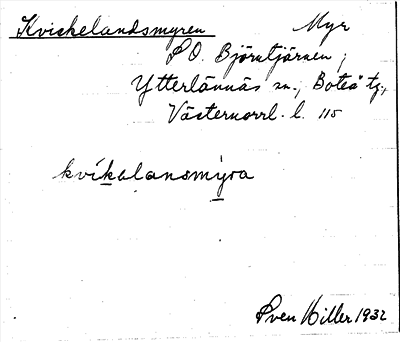 Kvickelandsmyren Myr
SO. Björntjärnen;
Ytterlännäs sn., Boteå tg.,
Västernorrl. l. 115
kvíkalansmy̆ra
Sven Hiller 1932